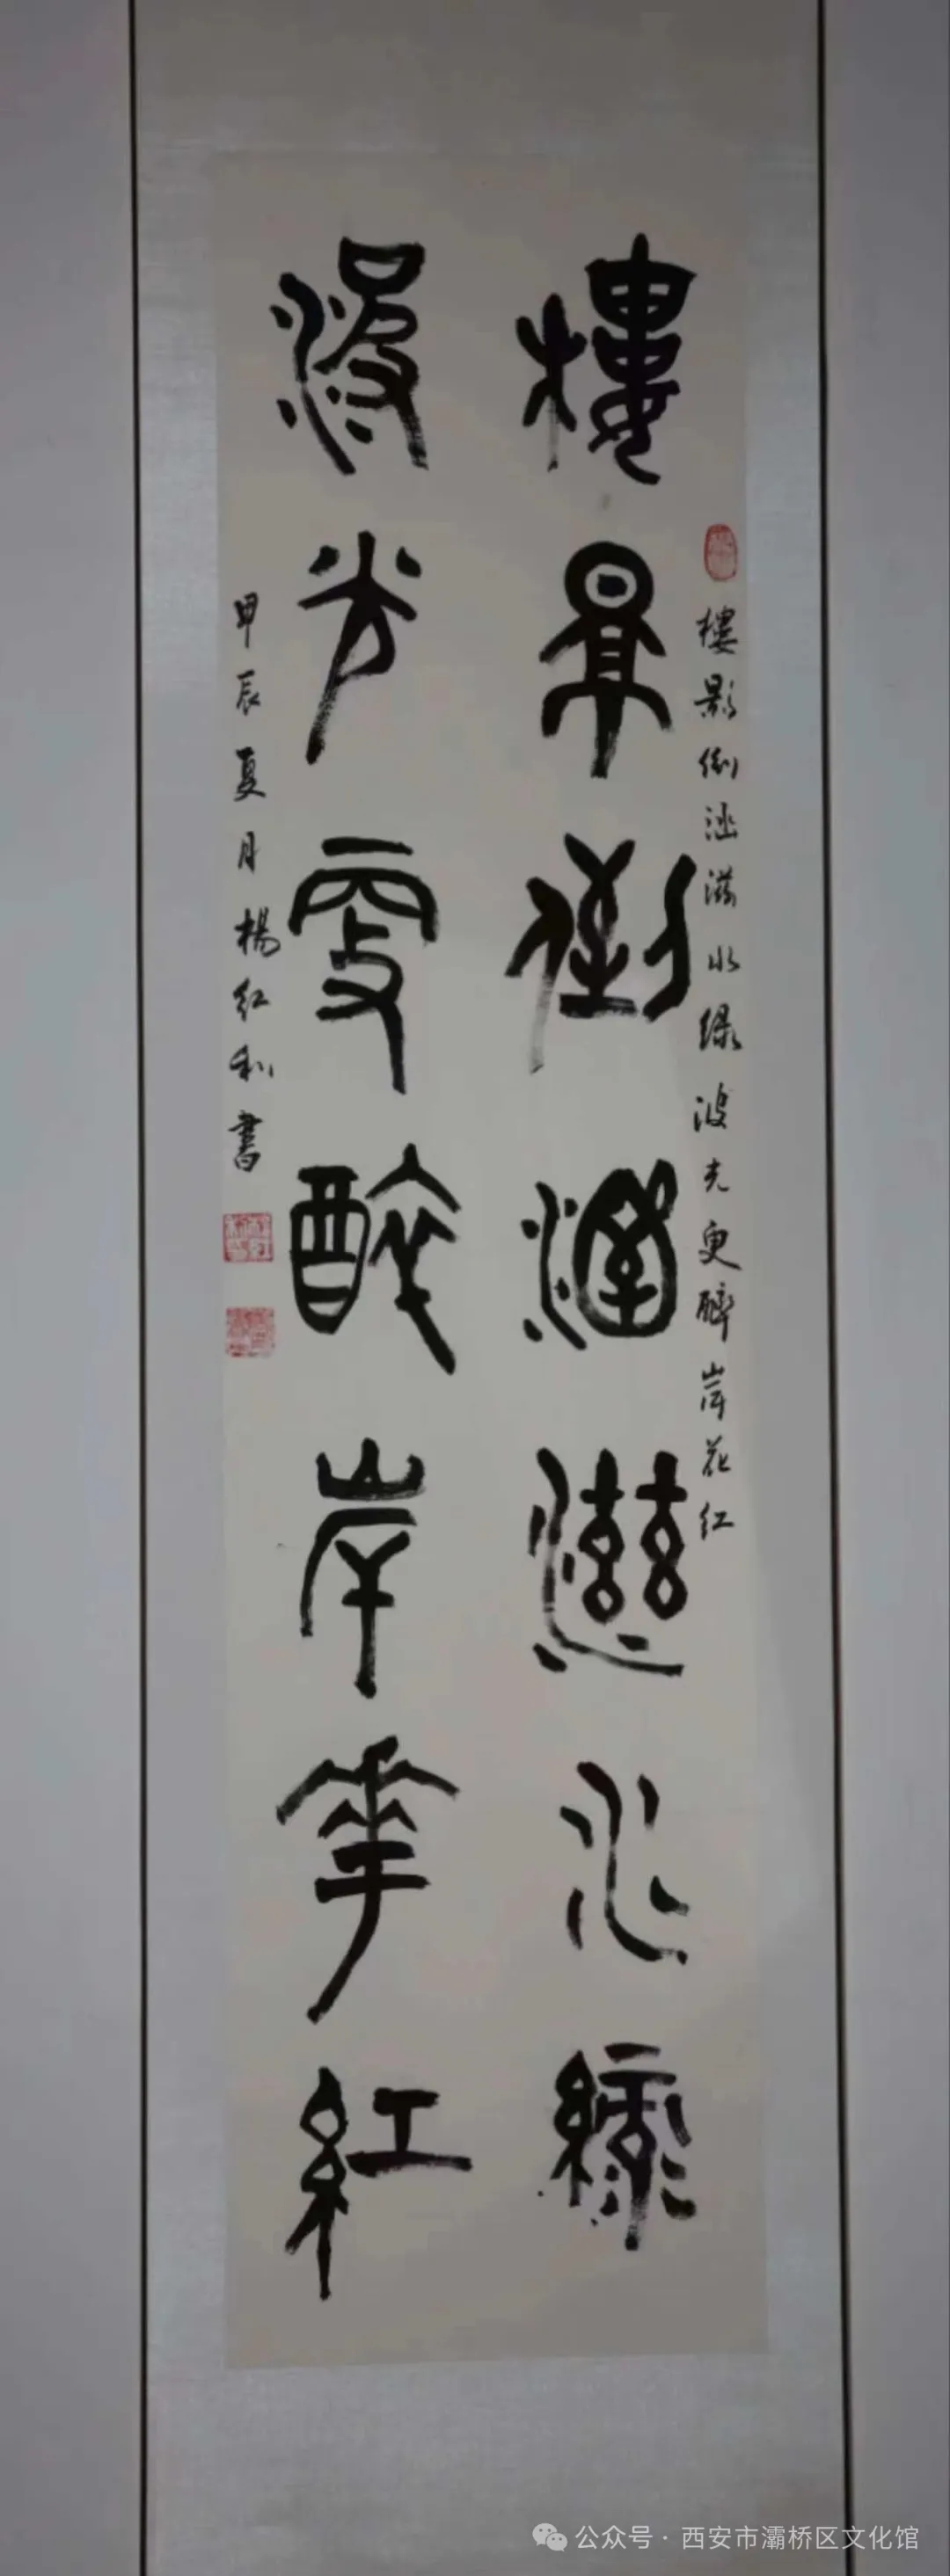 樓景倒涵滋水綠
波光更醉岸華紅
樓影倒涵滋水绿波光更醉岸花红
甲辰夏月楊红利書
公众号·西安市灞桥区文化馆